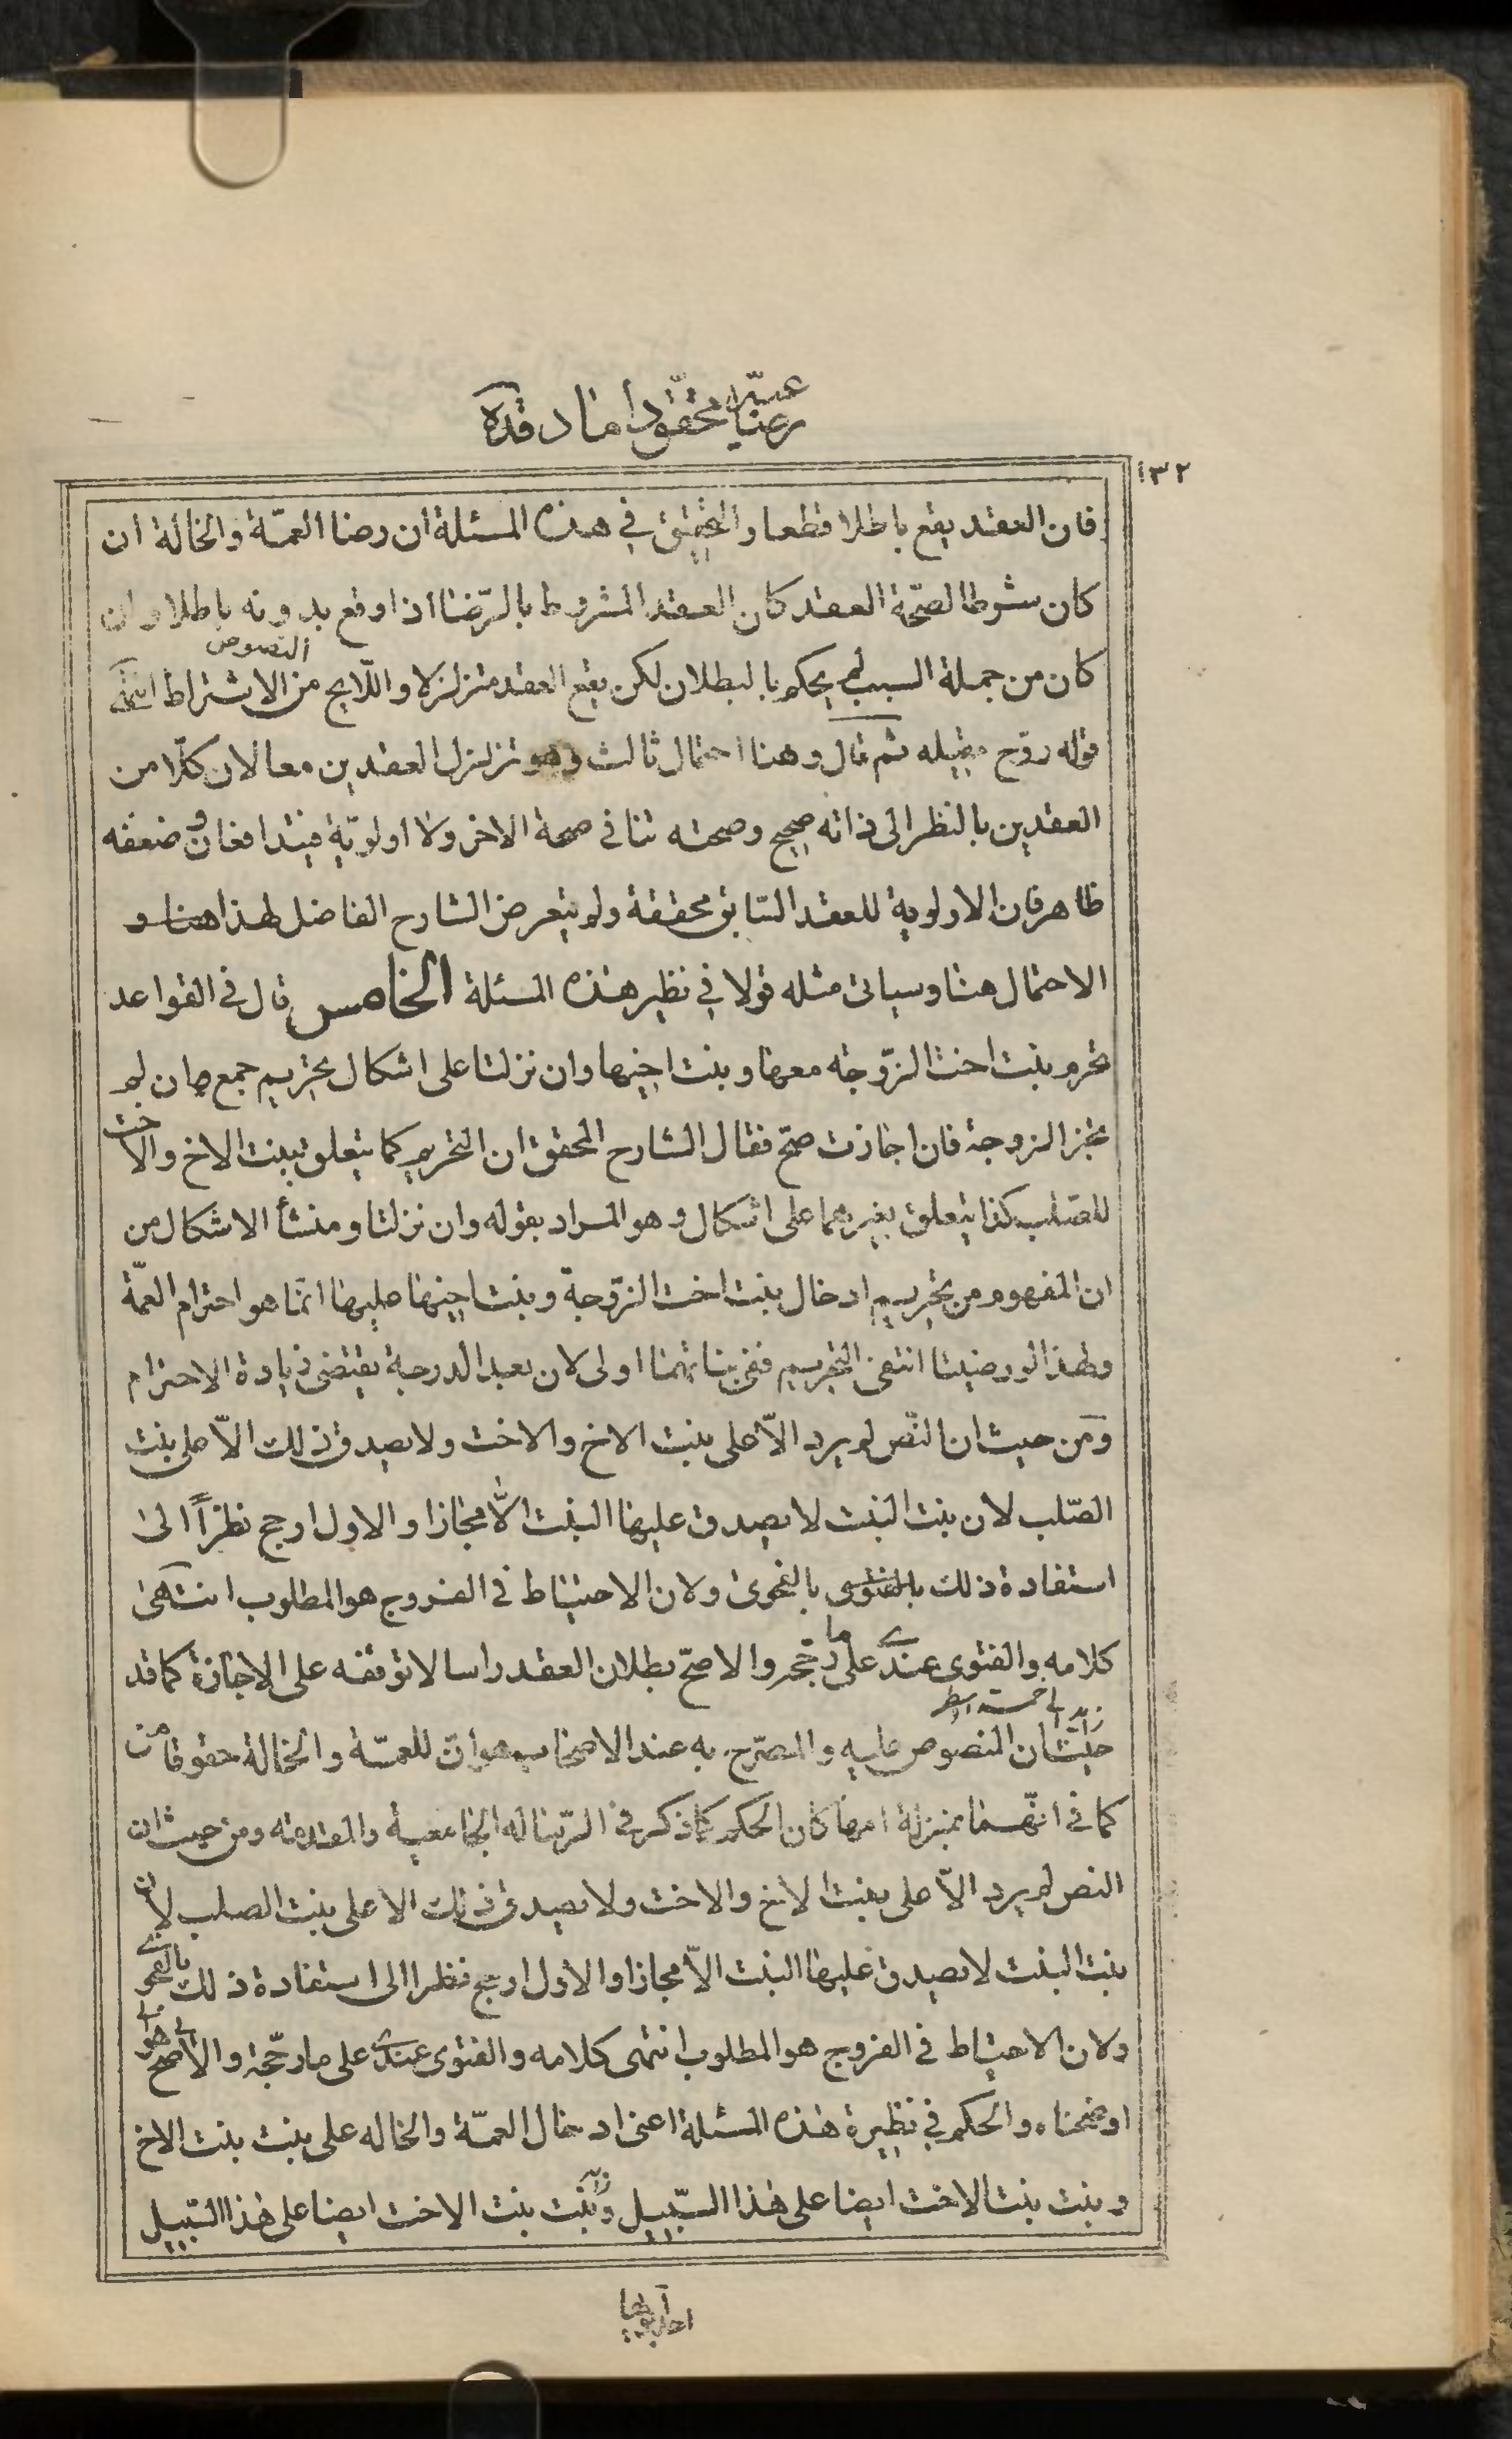 رضاعيّة محقق داماد قده
١٣٢
فان العقد يقع باطلا قطعا والتحقيق في هذه المسئلة ان رضا العمّة والخالة ان
كان شرطا لصحّة العقد كان العقد المشروط بالرّضا اذا وقع بدونه باطلا وان
كان من جملة السبب لم يحكم بالبطلان لكن يقع العقد متزلزلا واللّايح من النصوص الاشتراط انتهى
قوله روّح مقيله ثم قال وهنا احتمال ثالث وهو تزلزل العقدين معا لان كلّا من
العقدين بالنظر الى ذاته صحيح وصحته تنافي صحة الاخر ولا اولويّة فيتدافعان وضعفه
ظاهر فان الاولوية للعقد السّابق محققة ولم يتعرض الشارح الفاضل لهذا هنا و
الاحتمال هنا وسياتى مثله قولا في نظير هذه المسئلة الخامس قال في القواعد
تحرم بنت اخت الزّوجة معها وبنت اخيها وان نزلتا على اشكال تحريم جمع ان لم
تجز الزوجة فان اجازت صحّ فقال الشارح المحقق ان التحريم كما يتعلق ببنت الاخ والاخت
للصّلب كذا يتعلق بغيرهما على اشكال وهو المراد بقوله وان نزلتا ومنشأ الاشكال من
ان المفهوم من تحريم ادخال بنت اخت الزّوجة وبنت اخيها عليها انمّا هو احترام العمّة
ولهذا لو رضيتا انتفى التحريم ففى بناتهما اولى لان بعد الدرجة يقتضى زيادة الاحترام
ومن حيث ان النّص لم يرد الاّ على بنت الاخ والاخت ولا يصدق ذلك الاّ على بنت
الصّلب لان بنت البنت لا يصدق عليها البنت الاّ مجازا والاول ارجح نظراً الى
استفادة ذلك بالفتوى بالفحوى ولان الاحتياط في الفروج هو المطلوب انتهى
كلامه والفتوى عندى على ما رجّحه والاصحّ بطلان العقد راسا لا توقفه على الاجازة كما قد
حيث ان المنصوص عليه والمصرّح به عند الاصحاب هو انّ للعمّة والخالة حقوقا من
كما في انّهما بمنزلة امها كان الحكم كما ذكر في الرّسالة الجامعية والمقدمة ومن حيث ان
النص لم يرد الاّ على بنت الاخ والاخت ولا يصدق ذلك الا على بنت الصلب لان
بنت البنت لا يصدق عليها البنت الاّ مجازا والاول ارجح نظرا الى استفادة ذلك بالفحوى
ولان الاحتياط في الفروج هو المطلوب انتهى كلامه والفتوى عندى على ما رجّحه والاصح هو
اوضحناه والحكم في نظيرة هذه المسئلة اعنى ادخال العمّة والخاله على بنت بنت الاخ
وبنت بنت الاخت ايضا على هذا السّبيل وبنت بنت الاخت ايضا على هذا السّبيل